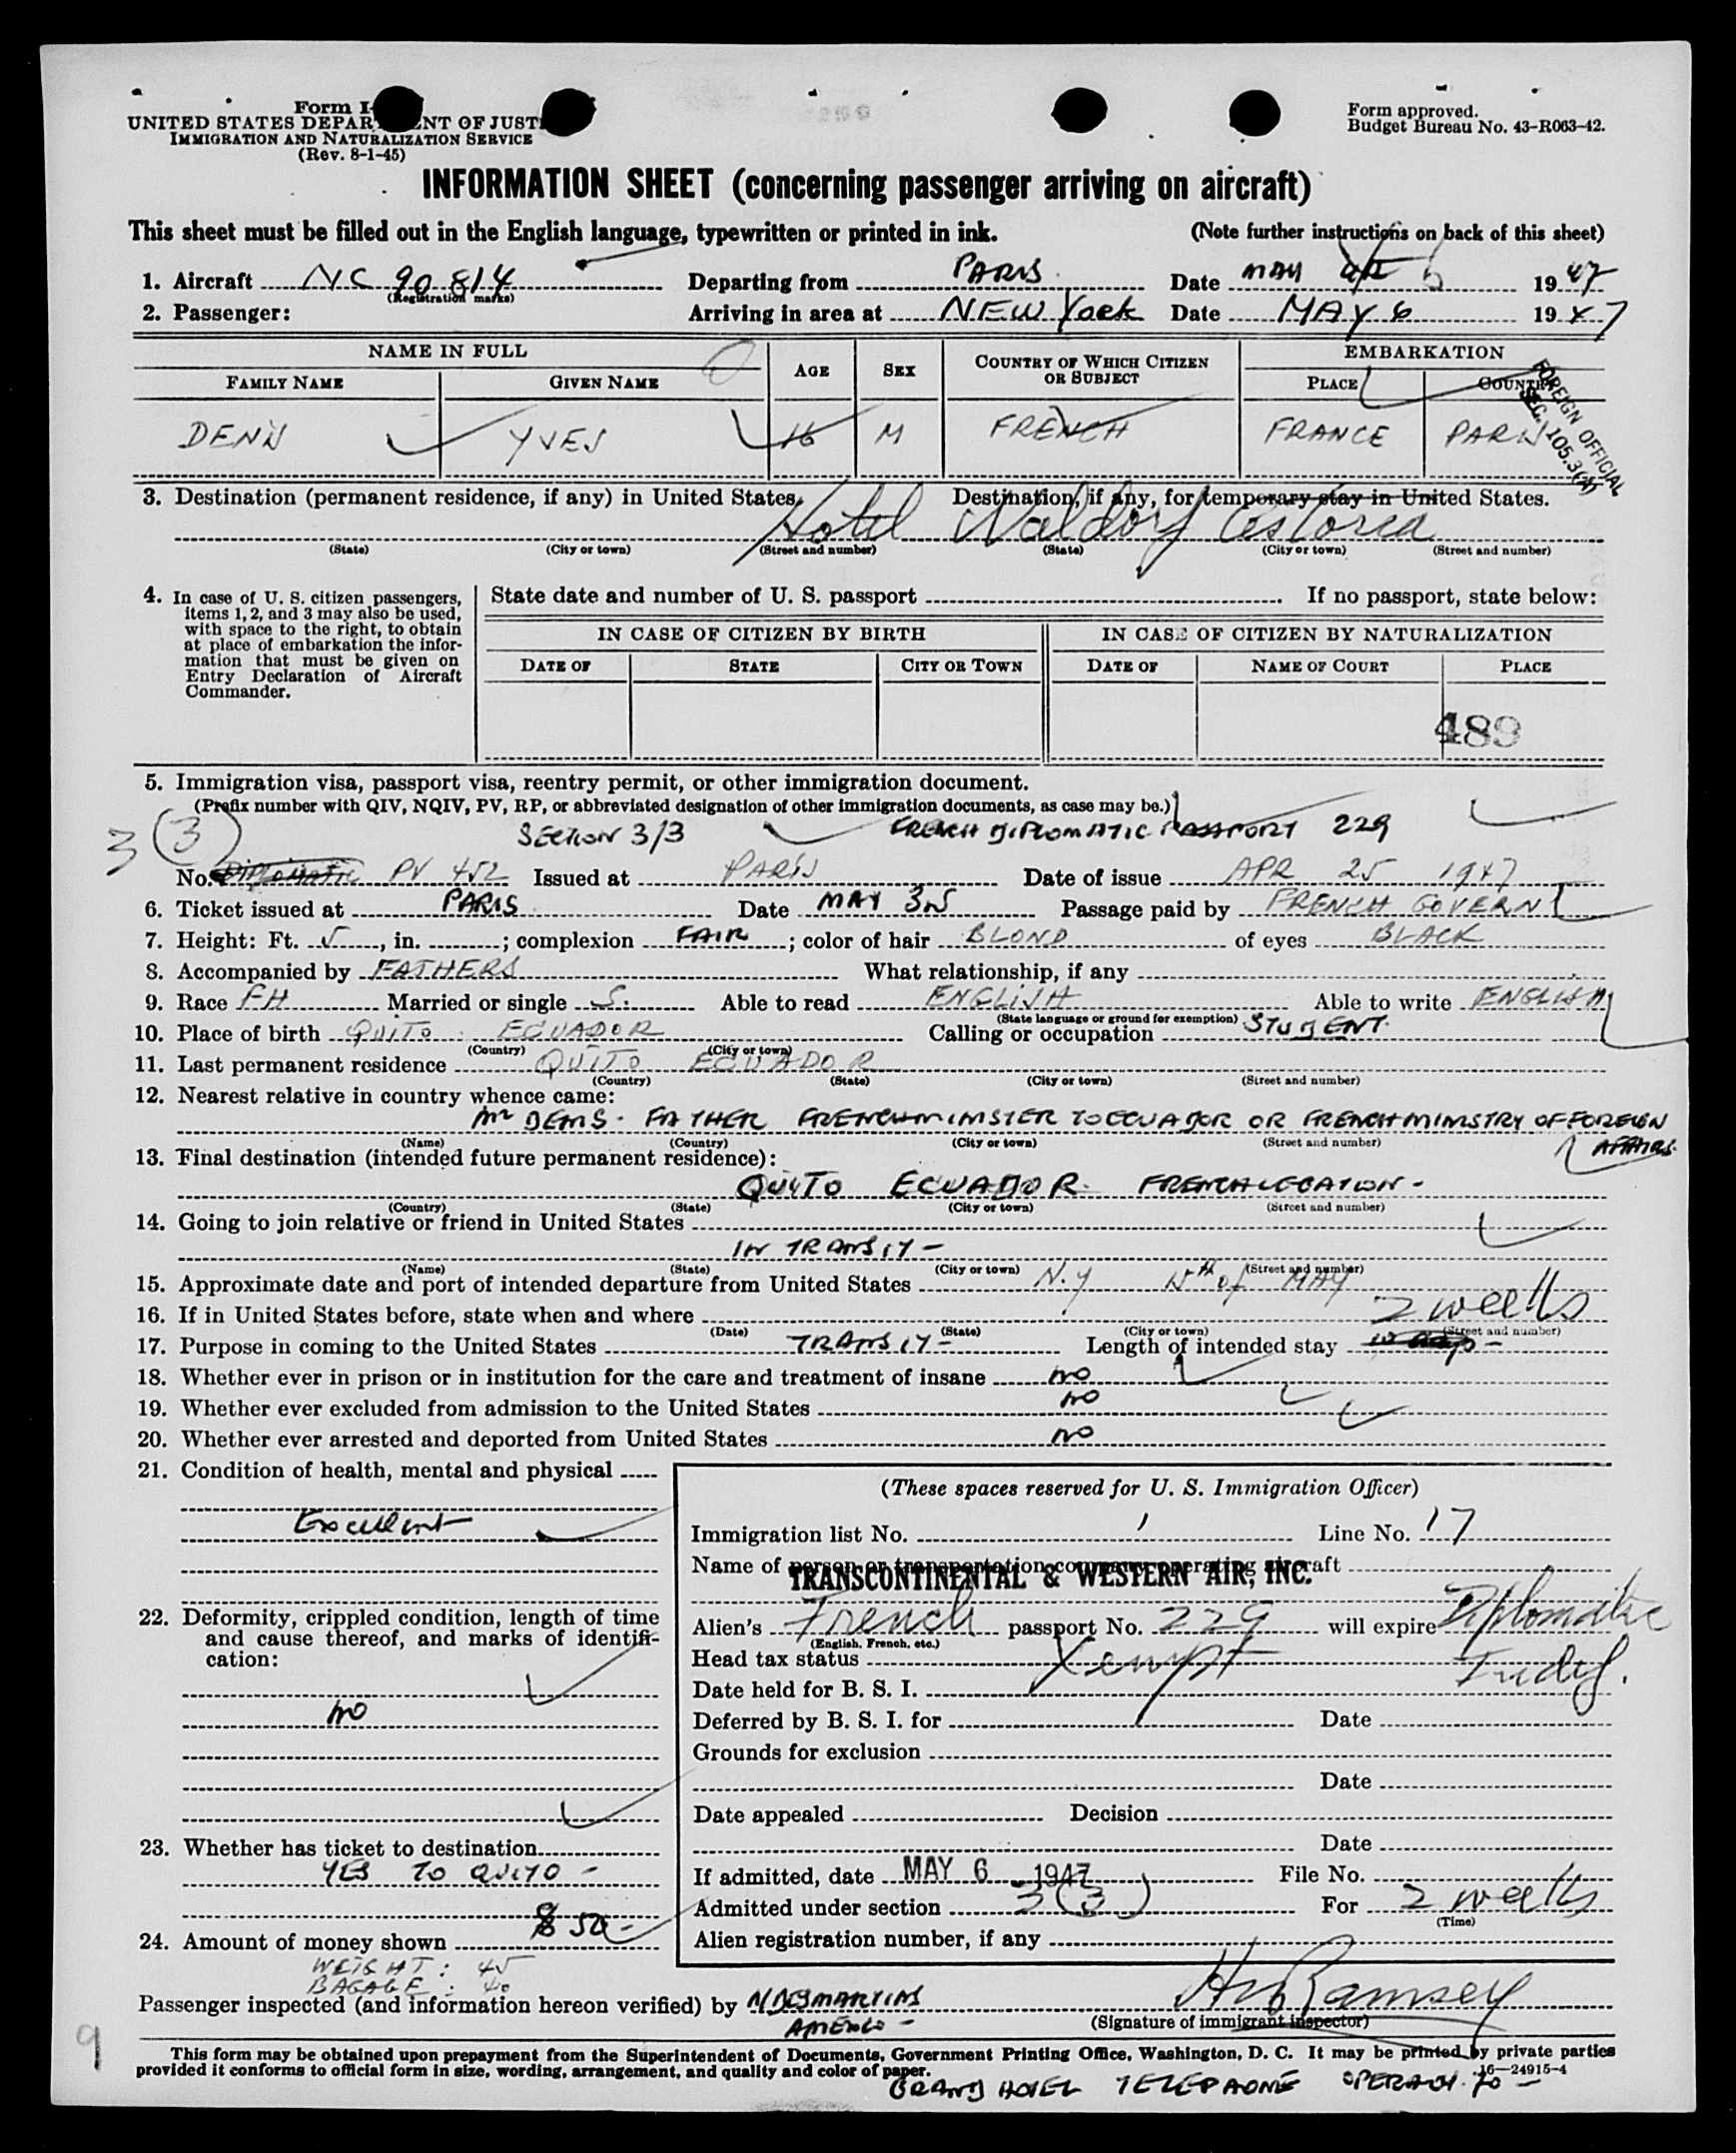 Form I-
UNITED STATES DEPAR NT OF JUST
IMMIGRATION AND NATURALIZATION SERVICE
(Rev. 8-1-45)
Form approved.
Budget Bureau No. 43-R063-42.
INFORMATION SHEET (concerning passenger arriving on aircraft)
This sheet must be filled out in the English language, typewritten or printed in ink. (Note further instructions on back of this sheet)
1. Aircraft NC 90814 Departing from PARIS Date MAY 1947
(Registration marks)
2. Passenger: Arriving in area at NEW York Date MAY 6 1947
NAME IN FULL AGE SEX COUNTRY OF WHICH CITIZEN OR SUBJECT EMBARKATION
FAMILY NAME GIVEN NAME PLACE COUNTRY
DENIS YVES 16 M FRENCH FRANCE PARIS
FOREIGN OFFICIAL
SEC. 105.3(4)
3. Destination (permanent residence, if any) in United States. Destination, if any, for temporary stay in United States.
Hotel Waldorf Astoria
(State) (City or town) (Street and number) (State) (City or town) (Street and number)
4. In case of U. S. citizen passengers, items 1, 2, and 3 may also be used, with space to the right, to obtain at place of embarkation the information that must be given on Entry Declaration of Aircraft Commander.
State date and number of U. S. passport If no passport, state below:
IN CASE OF CITIZEN BY BIRTH IN CASE OF CITIZEN BY NATURALIZATION
DATE OF STATE CITY OR TOWN DATE OF NAME OF COURT PLACE
489
5. Immigration visa, passport visa, reentry permit, or other immigration document.
(Prefix number with QIV, NQIV, PV, RP, or abbreviated designation of other immigration documents, as case may be.)
3 (3) SECTION 3/3 FRENCH DIPLOMATIC PASSPORT 229
No. DIPLOMATIC PV 452 Issued at PARIS Date of issue APR 25 1947
6. Ticket issued at PARIS Date MAY 3 Passage paid by FRENCH GOVERN
7. Height: Ft. 5, in. ; complexion FAIR ; color of hair BLOND of eyes BLACK
8. Accompanied by FATHERS What relationship, if any
9. Race FH Married or single S. Able to read ENGLISH Able to write ENGLISH
(State language or ground for exemption)
10. Place of birth QUITO ECUADOR Calling or occupation STUDENT
(Country) (City or town)
11. Last permanent residence QUITO ECUADOR
(Country) (State) (City or town) (Street and number)
12. Nearest relative in country whence came:
Mr DENIS - FATHER FRENCH MINISTER TO ECUADOR OR FRENCH MINISTRY OF FOREIGN
AFFAIRS.
(Name) (Country) (City or town) (Street and number)
13. Final destination (intended future permanent residence):
QUITO ECUADOR FRENCH LEGATION -
(Country) (State) (City or town) (Street and number)
14. Going to join relative or friend in United States
IN TRANSIT -
(Name) (State) (City or town) (Street and number)
15. Approximate date and port of intended departure from United States N.Y of MAY
16. If in United States before, state when and where
2 weeks
(Date) (State) (City or town) (Street and number)
17. Purpose in coming to the United States TRANSIT - Length of intended stay
18. Whether ever in prison or in institution for the care and treatment of insane NO
19. Whether ever excluded from admission to the United States NO
20. Whether ever arrested and deported from United States NO
21. Condition of health, mental and physical
Excellent
22. Deformity, crippled condition, length of time and cause thereof, and marks of identification:
NO
23. Whether has ticket to destination
YES TO QUITO -
24. Amount of money shown $ 50 -
WEIGHT: 45
BAGAGE: 40
(These spaces reserved for U. S. Immigration Officer)
Immigration list No. 1 Line No. 17
Name of person or transportation company operating aircraft
TRANSCONTINENTAL & WESTERN AIR, INC.
Alien's French passport No. 229 will expire Diplomatic
(English, French, etc.)
Head tax status Xempt Indef.
Date held for B. S. I.
Deferred by B. S. I. for Date
Grounds for exclusion
Date
Date appealed Decision
Date
If admitted, date MAY 6 1947 File No.
Admitted under section 3(3) For 2 weeks
(Time)
Alien registration number, if any
Passenger inspected (and information hereon verified) by
Ramsey
(Signature of immigrant inspector)
9
This form may be obtained upon prepayment from the Superintendent of Documents, Government Printing Office, Washington, D. C. It may be printed by private parties
provided it conforms to official form in size, wording, arrangement, and quality and color of paper.
16—24915-4
GRAND HOTEL TELEPHONE